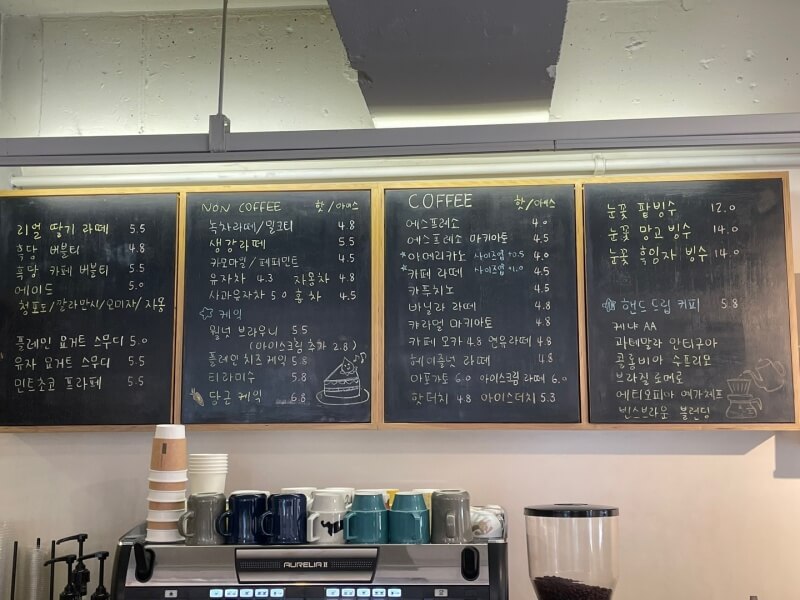 리얼 딸기 라떼 5.5
흑당 버블티 4.8
흑당 카페 버블티 5.5
에이드 5.0
청포도/깔라만시/오미자/자몽
플레인 요거트 스무디 5.0
유자 요거트 스무디 5.5
민트초코 프라페 5.5
NON COFFEE 핫/아이스
녹차라떼/밀크티 4.8
생강라떼 5.5
카모마일/페퍼민트 4.5
유자차 4.3 자몽차 4.8
사과유자차 5.0 홍차 4.5
케익
월넛 브라우니 5.5
(아이스크림 추가 2.8)
플레인 치즈 케익 5.8
티라미수 5.8
당근 케익 6.8
COFFEE 핫/아이스
에스프레소 4.0
에스프레소 마키아토 4.5
*아메리카노 사이즈업 +0.5 4.0
*카페 라떼 사이즈업 +1.0 4.5
카푸치노 4.5
바닐라 라떼 4.8
캬라멜 마키아토 4.8
카페 모카 4.8 연유라떼 4.8
헤이즐넛 라떼 4.8
아포가토 6.0 아이스크림 라떼 6.0
핫더치 4.8 아이스더치 5.3
눈꽃 팥빙수 12.0
눈꽃 망고 빙수 14.0
눈꽃 흑임자 빙수 14.0
핸드드립 커피 5.8
케냐 AA
과테말라 안티구아
콜롬비아 수프리모
브라질
에티오피아 예가체프
빈스브라운 블렌딩
AURELIA II